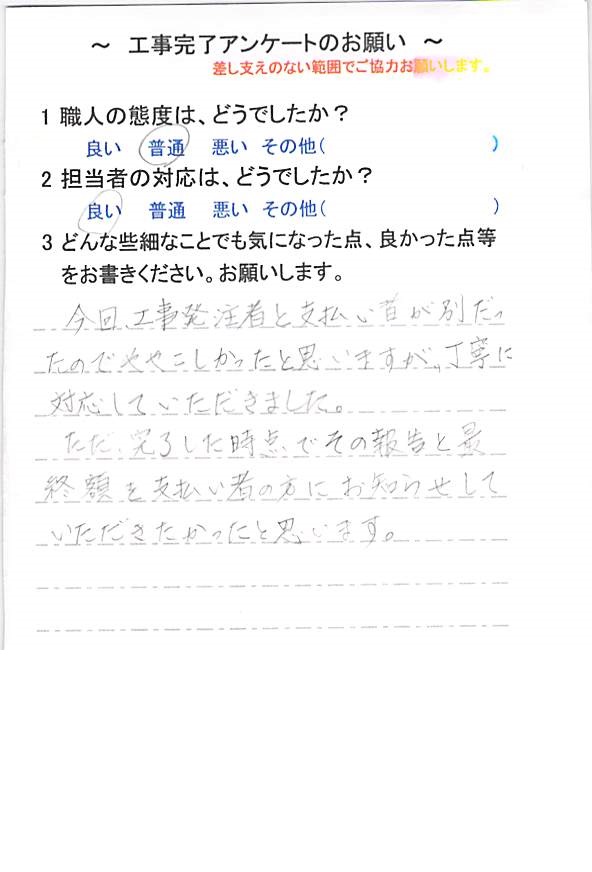 ～ 工事完了アンケートのお願い ～
差し支えのない範囲でご協力お願いします。
1 職人の態度は、どうでしたか？
良い 普通 悪い その他( )
2 担当者の対応は、どうでしたか？
良い 普通 悪い その他( )
3 どんな些細なことでも気になった点、良かった点等
をお書きください。お願いします。
今回、工事発注者と支払い者が別だっ
たのでややこしかったと思いますが、丁寧に
対応していただきました。
ただ、完了した時点でその報告と最
終額を支払い者の方にお知らせして
いただきたかったと思います。